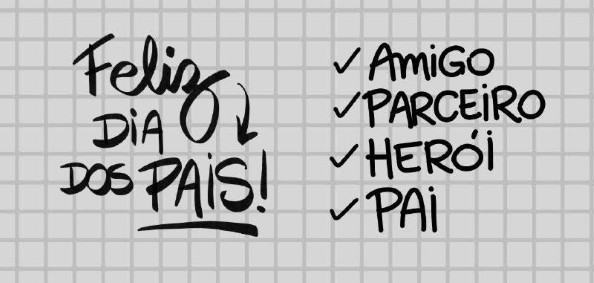 Feliz
DiA
DOS PAiS!
✓ AMiGO
✓ PARCEiRO
✓ HERÓi
✓ PAi